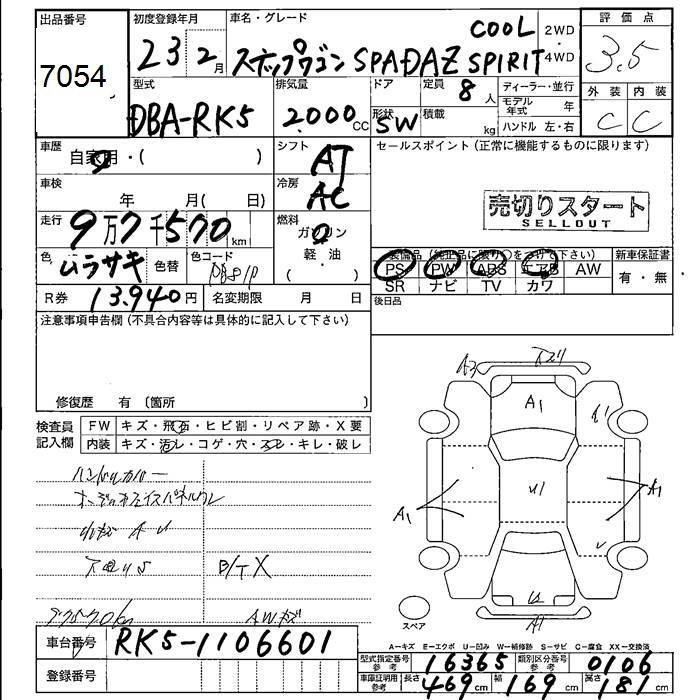 出品番号
7054
初度登録年月
23 2月
車名・グレード
COOL
ステップワゴン SPADAZ SPIRIT
2WD
4WD
評価点
3.5
外装 内装
C C
型式
DBA-RK5
排気量
2000cc
ドア
形状
SW
定員
8人
積載
kg
ディーラー・並行
モデル年式 年
ハンドル 左・右
車歴
自家用・( )
シフト
AT
セールスポイント (正常に機能するものに限ります)
売切りスタート
SELLOUT
車検
年 月( 日)
冷房
AC
走行
9万7千570km
燃料
ガソリン
軽油
( )
色
ムラサキ
色替
色コード
PB81P
装備品 (純正品に限り○をつけて下さい)
新車保証書
PS PW ABS エアB AW
有・無
SR ナビ TV カワ
R券 13.940円
名変期限 月 日
後日品
注意事項申告欄 (不具合内容等は具体的に記入して下さい)
修復歴 有 〔箇所 〕
検査員記入欄
FW キズ・飛石・ヒビ割・リペア跡・X要
内装 キズ・汚レ・コゲ・穴・スレ・キレ・破レ
ハンドルカバー
B/T X
AWキズ
A3
A1
U1
A1
A1
U
A1
スペア
A=キズ E=エクボ U=凹み W=補修跡 S=サビ C=腐食 XX=交換済
車台番号 RK5-1106601
登録番号
型式指定番号 参考 16365
類別区分番号 参考 0106
車庫証明用 参考 長さ 469cm 幅 169cm 高さ 181cm